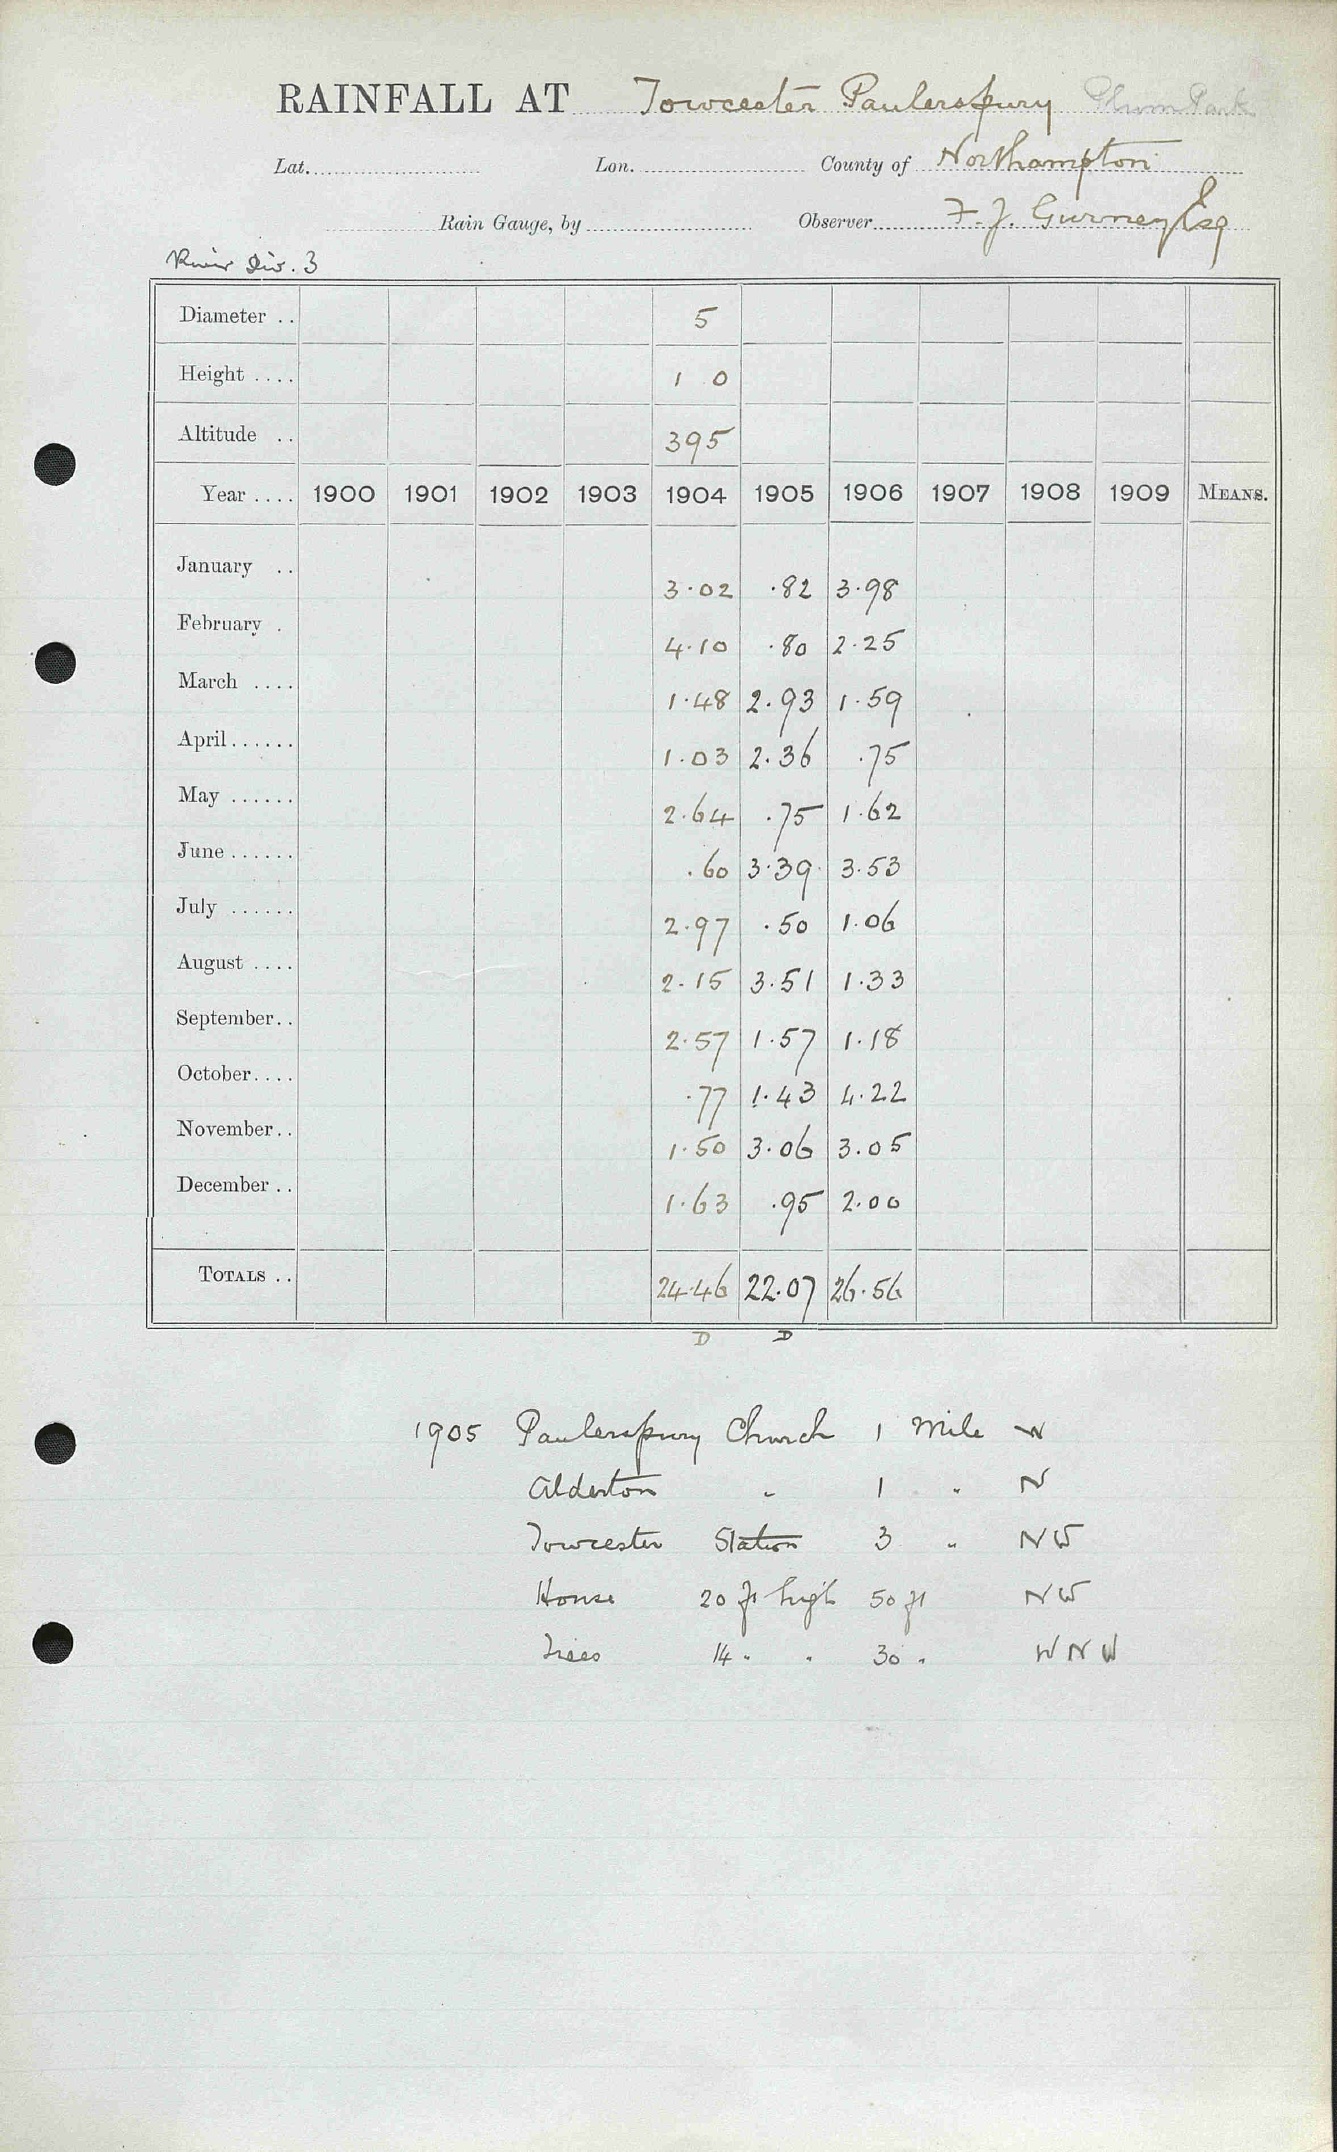 RAINFALL AT Towcester Paulerspury Plum Park
Lat. Lon. County of Northampton
Rain Gauge, by Observer F. J. Gurney Esq
River Div. 3
Diameter .. 5
Height .... 1 0
Altitude .. 395
Year .... 1900 1901 1902 1903 1904 1905 1906 1907 1908 1909 MEANS.
January .. 3.02 .82 3.98
February . 4.10 .80 2.25
March .... 1.48 2.93 1.59
April...... 1.03 2.36 .75
May ...... 2.64 .75 1.62
June...... .60 3.39 3.53
July ...... 2.97 .50 1.06
August .... 2.15 3.51 1.33
September.. 2.57 1.57 1.18
October.... .77 1.43 4.22
November.. 1.50 3.06 3.05
December .. 1.63 .95 2.00
TOTALS .. 24.46 22.07 26.56
D D
1905 Paulerspury Church 1 Mile W
Alderton " 1 " N
Towcester Station 3 " NW
House 20 ft high 50 ft NW
Trees 14 " " 30 " WNW